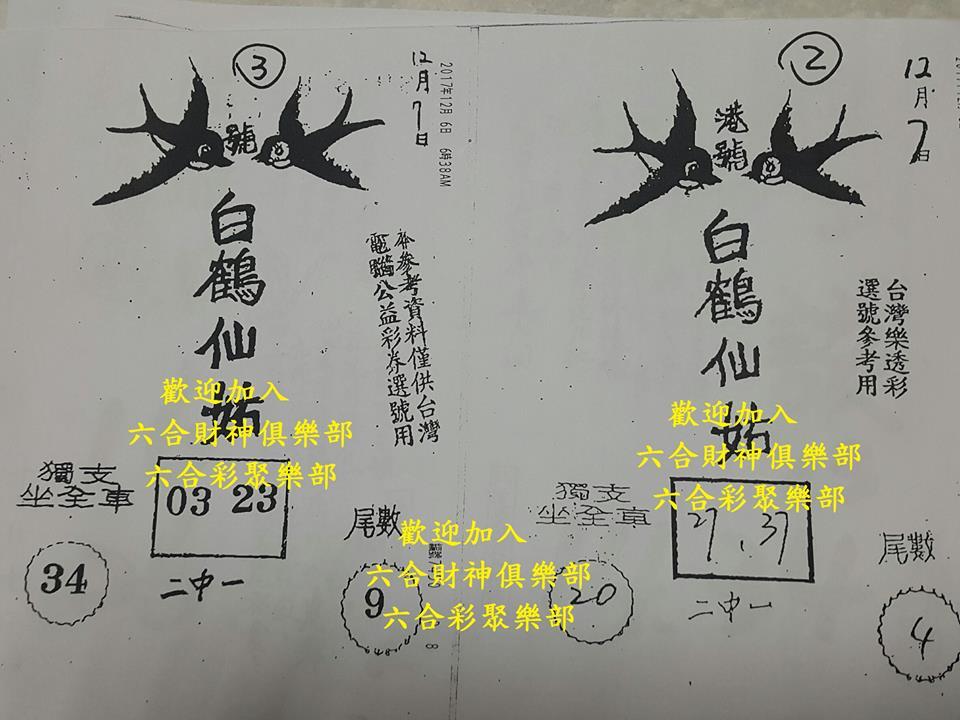 ③
12月7日
2017年12月 6日 6時38AM
號
白鶴仙姑
本參考資料僅供台灣
電腦公益彩券選號用
歡迎加入
六合財神俱樂部
六合彩聚樂部
獨支
坐全車
03 23
34
二中一
尾數
9
8
歡迎加入
六合財神俱樂部
六合彩聚樂部
②
12月7日
港號
白鶴仙姑
台灣樂透彩
選號參考用
歡迎加入
六合財神俱樂部
六合彩聚樂部
獨支
坐全車
27、37
20
二中一
尾數
4